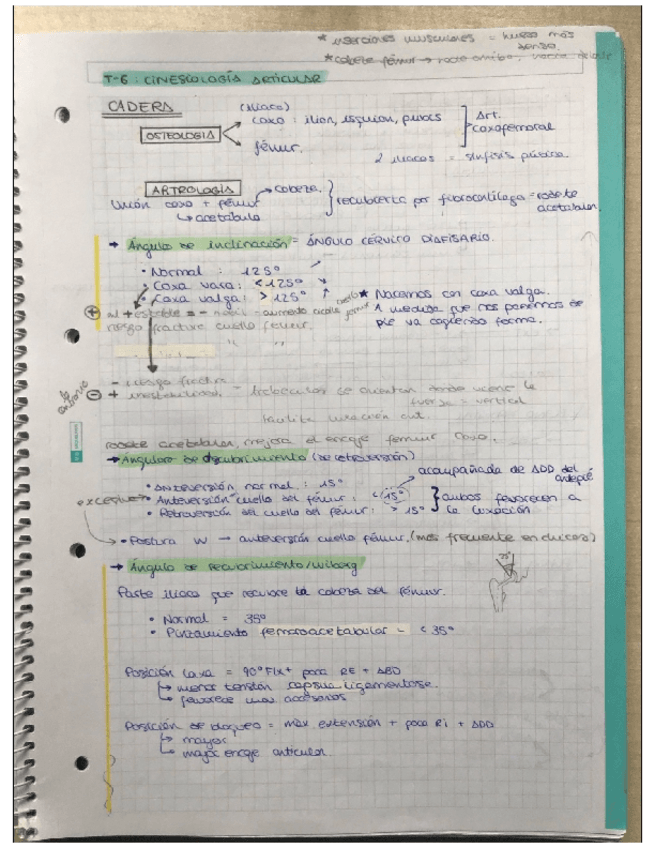 * inserciones musculares = hueso más denso.
* cabeza fémur → hacia arriba,
T-6: CINESIOLOGÍA ARTICULAR
CADERA
(ilíaco)
OSTEOLOGIA
coxa: ilion, isquion, pubis
fémur.
Art. coxofemoral
2 iliacos = sínfisis púbica.
ARTROLOGÍA
Unión coxa + fémur → cabeza.
↳ acetábulo
recubierta por fibrocartílago = rodete acetabular.
→ Ángulo de inclinación = ÁNGULO CÉRVICO DIAFISARIO.
• Normal : 125º
• Coxa vara: < 125º
• Coxa valga: > 125º
* Nacemos con coxa valga.
A medida que nos ponemos de pie va cogiendo forma.
⊕ + estable = - aumento
riesgo fractura cuello fémur.
- riesgo fractura
⊖ + inestabilidad
fuerza = vertical
rodete acetabular, mejora el encaje femur coxa.
→ Ángulo de descubrimiento (de retroversión)
• Anteversión normal : 15º
acompañada de ADD del antepié
excesiva
• Anteversión cuello del fémur : < 15º
• Retroversión del cuello del fémur : > 15º
ambos favorecen a la luxación
• Postura W → anteversión cuello fémur. (más frecuente en chicas)
→ Ángulo de recubrimiento/Wiberg
Parte iliaca que recubre la cabeza del fémur.
• Normal = 35º
• Pinzamiento femoroacetabular - < 35º
Posición laxa = 90º Flx + poca RE + ABD
↳ menor tensión capsuloligamentosa.
↳ favorece mov accesorios
Posición de bloqueo = máx extensión + poca Ri + ADD
↳ mayor
↳ mayor encaje articular.